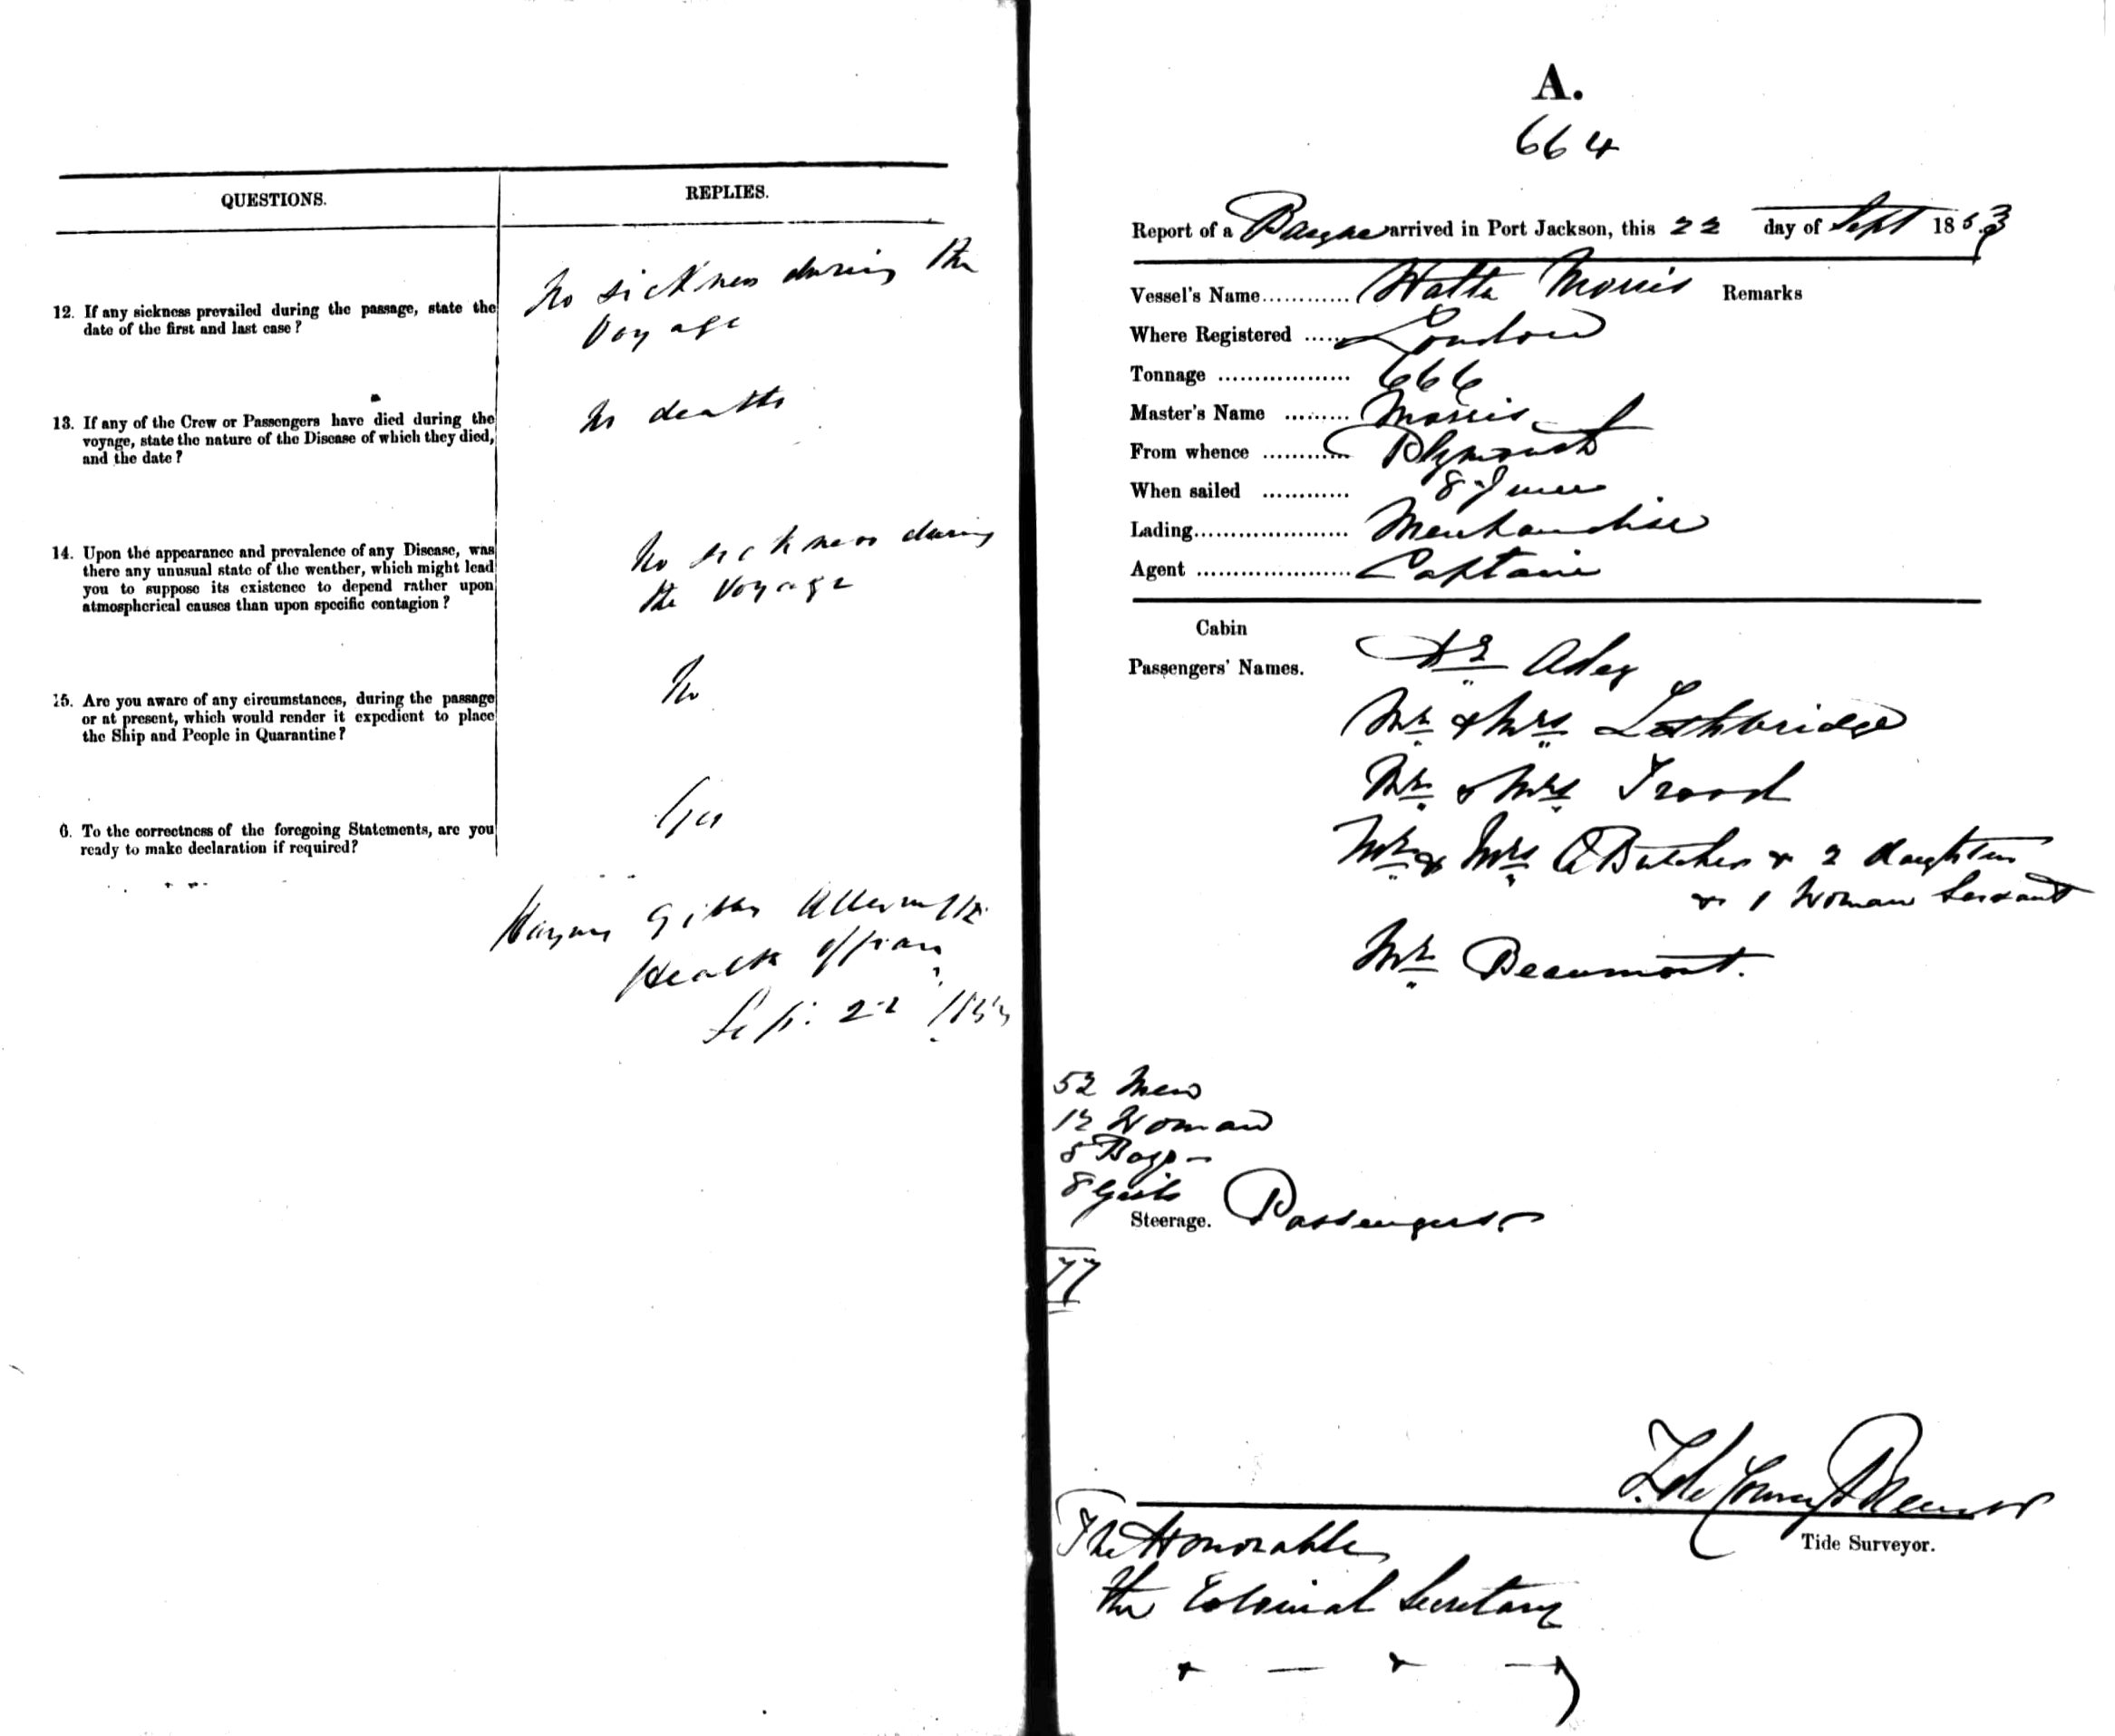 QUESTIONS.
REPLIES.
12. If any sickness prevailed during the passage, state the
date of the first and last case?
No sickness during the
Voyage
13. If any of the Crew or Passengers have died during the
voyage, state the nature of the Disease of which they died,
and the date?
No deaths
14. Upon the appearance and prevalence of any Disease, was
there any unusual state of the weather, which might lead
you to suppose its existence to depend rather upon
atmospherical causes than upon specific contagion?
No sickness during
the Voyage
15. Are you aware of any circumstances, during the passage
or at present, which would render it expedient to place
the Ship and People in Quarantine?
No
6. To the correctness of the foregoing Statements, are you
ready to make declaration if required?
Yes
Haynes Gibbes Alleyne
Health Officer
Sept. 22 1853
A.
664
Report of a Barque arrived in Port Jackson, this 22 day of Sept 1853
Vessel's Name............ Morris Remarks
Where Registered ...... London
Tonnage .................. 666
Master's Name ......... Morris
From whence ............ Plymouth
When sailed ............ 8 June
Lading..................... Merchandise
Agent ..................... Captain
Cabin
Passengers' Names. Dr Adey
Mr & Mrs Lethbridge
Mr & Mrs Trood
Mr & Mrs Butcher & 2 daughters
& 1 Woman Servant
Mr Beaumont.
52 Men
12 Woman
5 Boys
8 Girls
Steerage. Passengers.
77
Tide Surveyor.
The Honorable
the Colonial Secretary